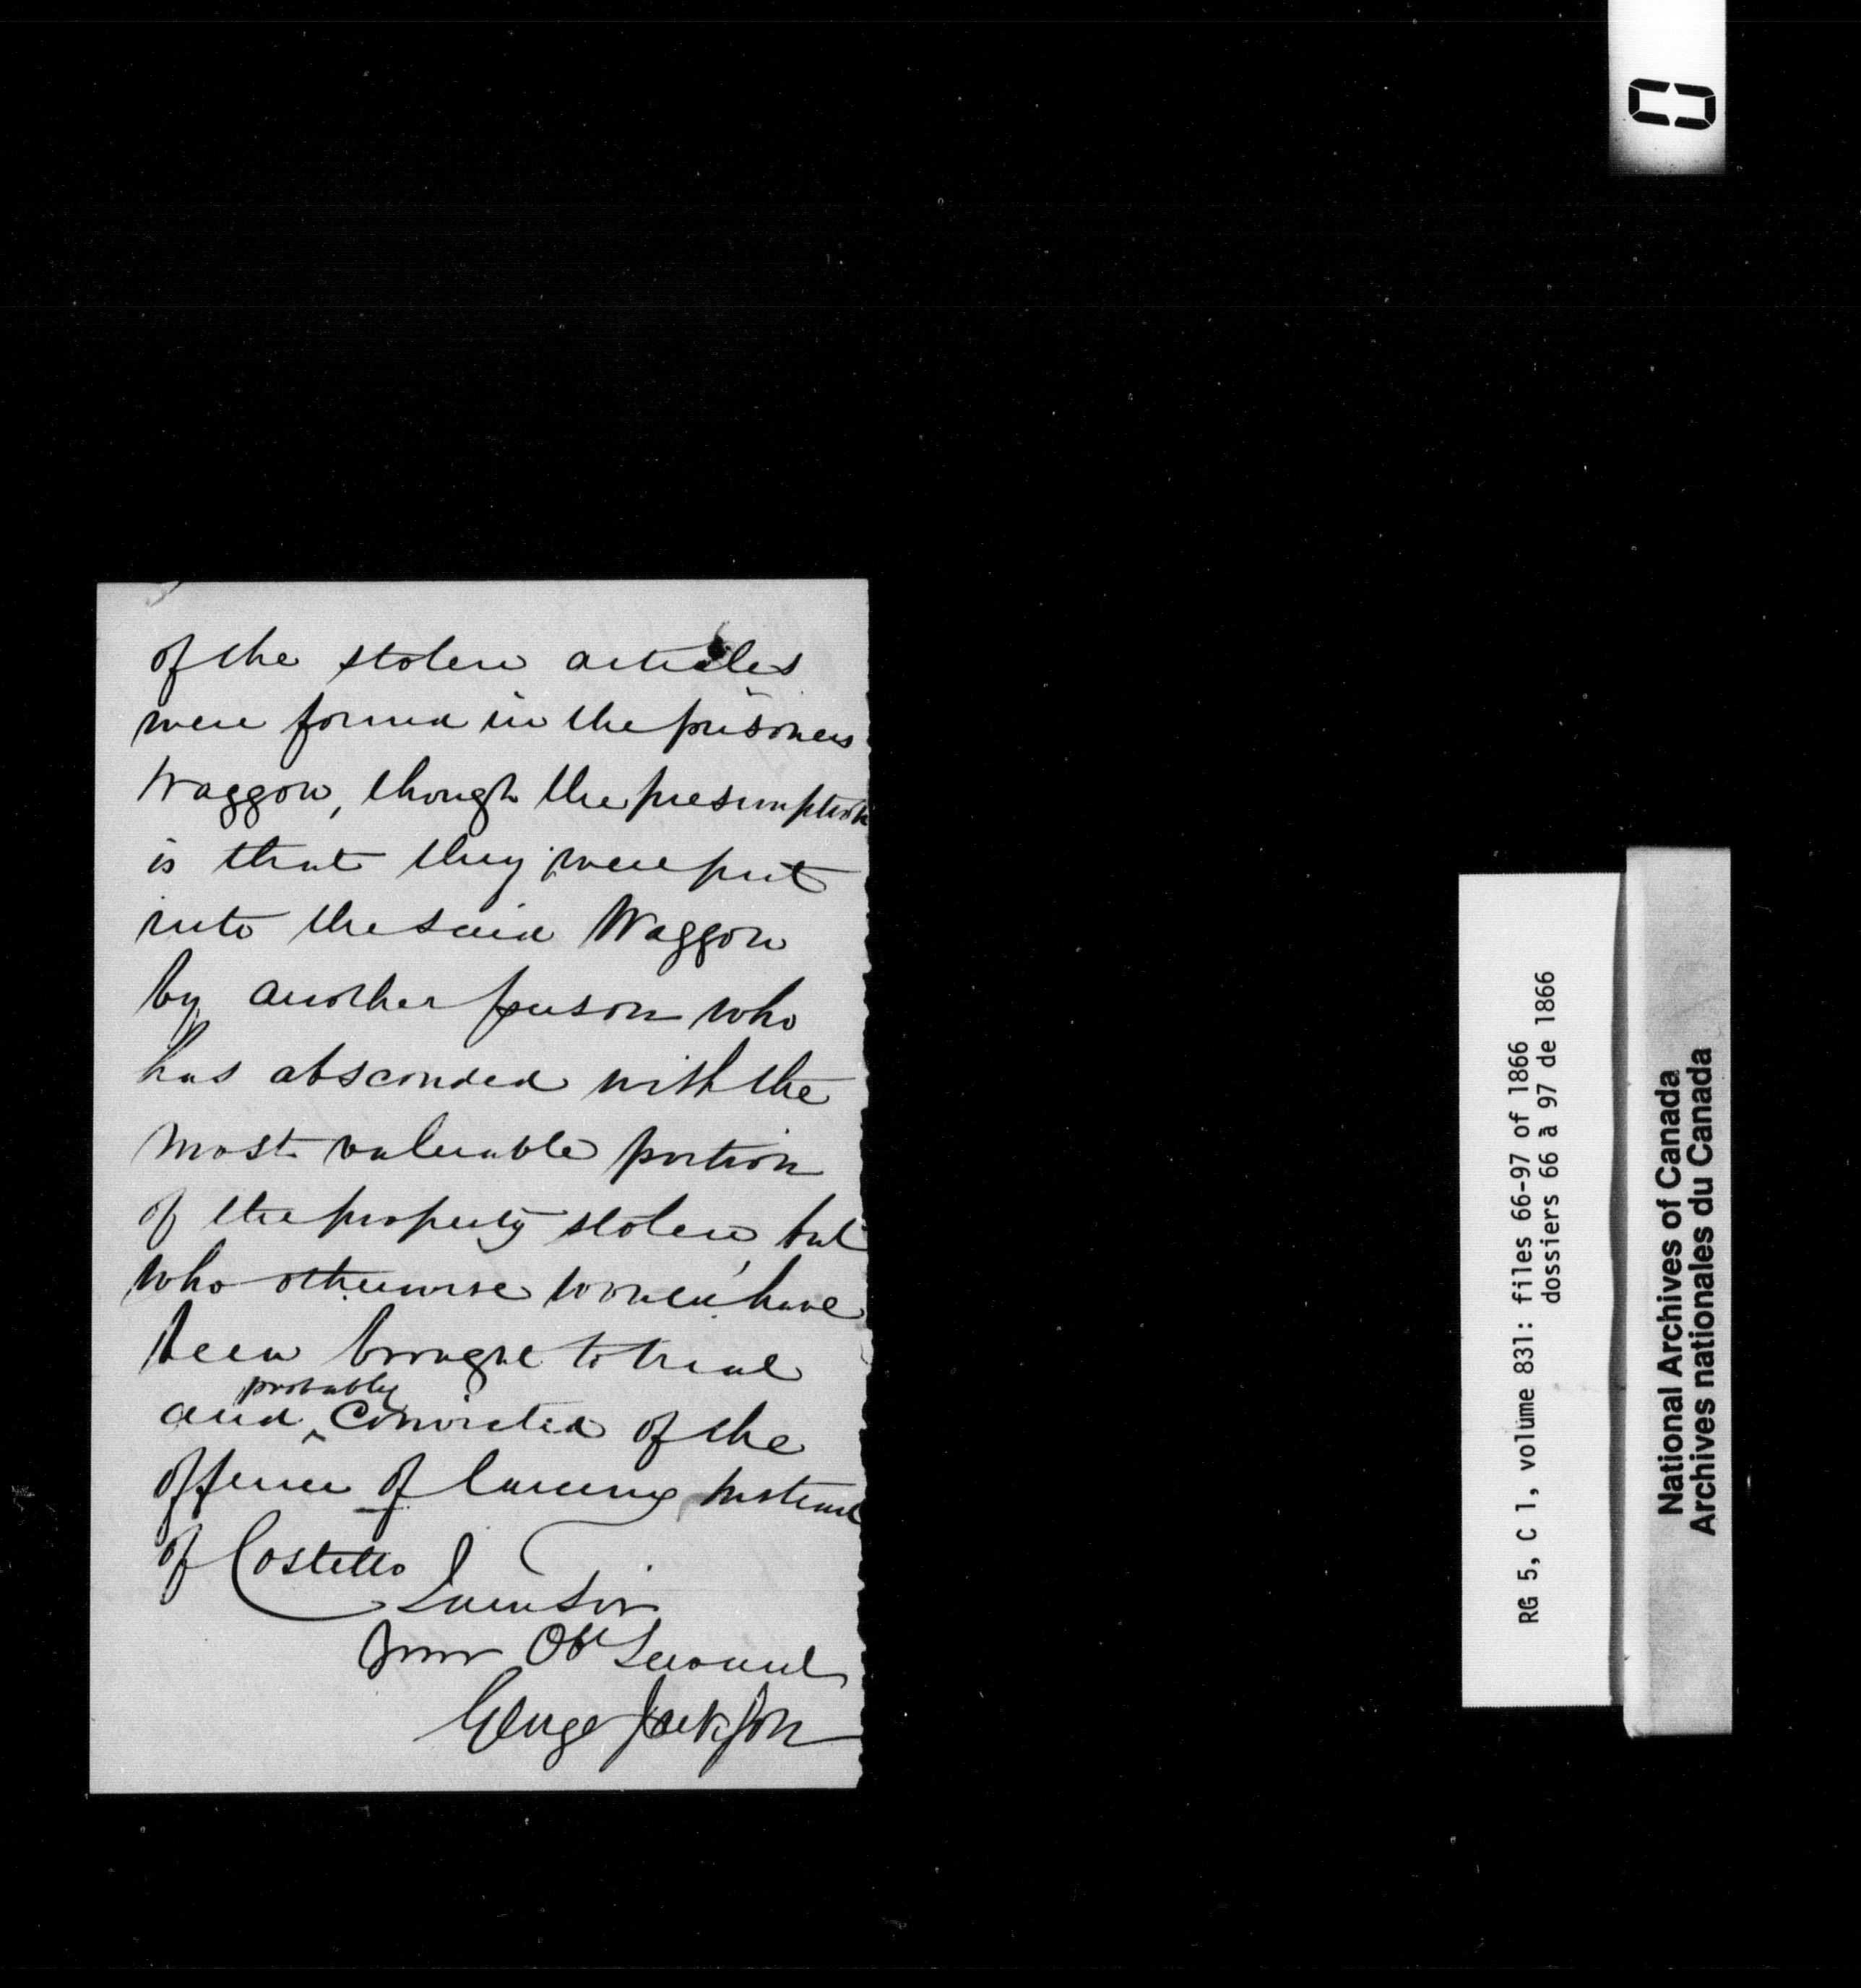 of the stolen articles
were found in the prisoners
Waggon, though the presumption
is that they were put
into the said Waggon
by another person who
has absconded with the
most valuable portion
of the property stolen, but
who otherwise would have
been brought to trial
and probably convicted of the
offence of larceny instead
of Costello
I am Sir
Your Obt Servant
George Jackson
RG 5, C 1, volume 831: files 66-97 of 1866
dossiers 66 à 97 de 1866
National Archives of Canada
Archives nationales du Canada